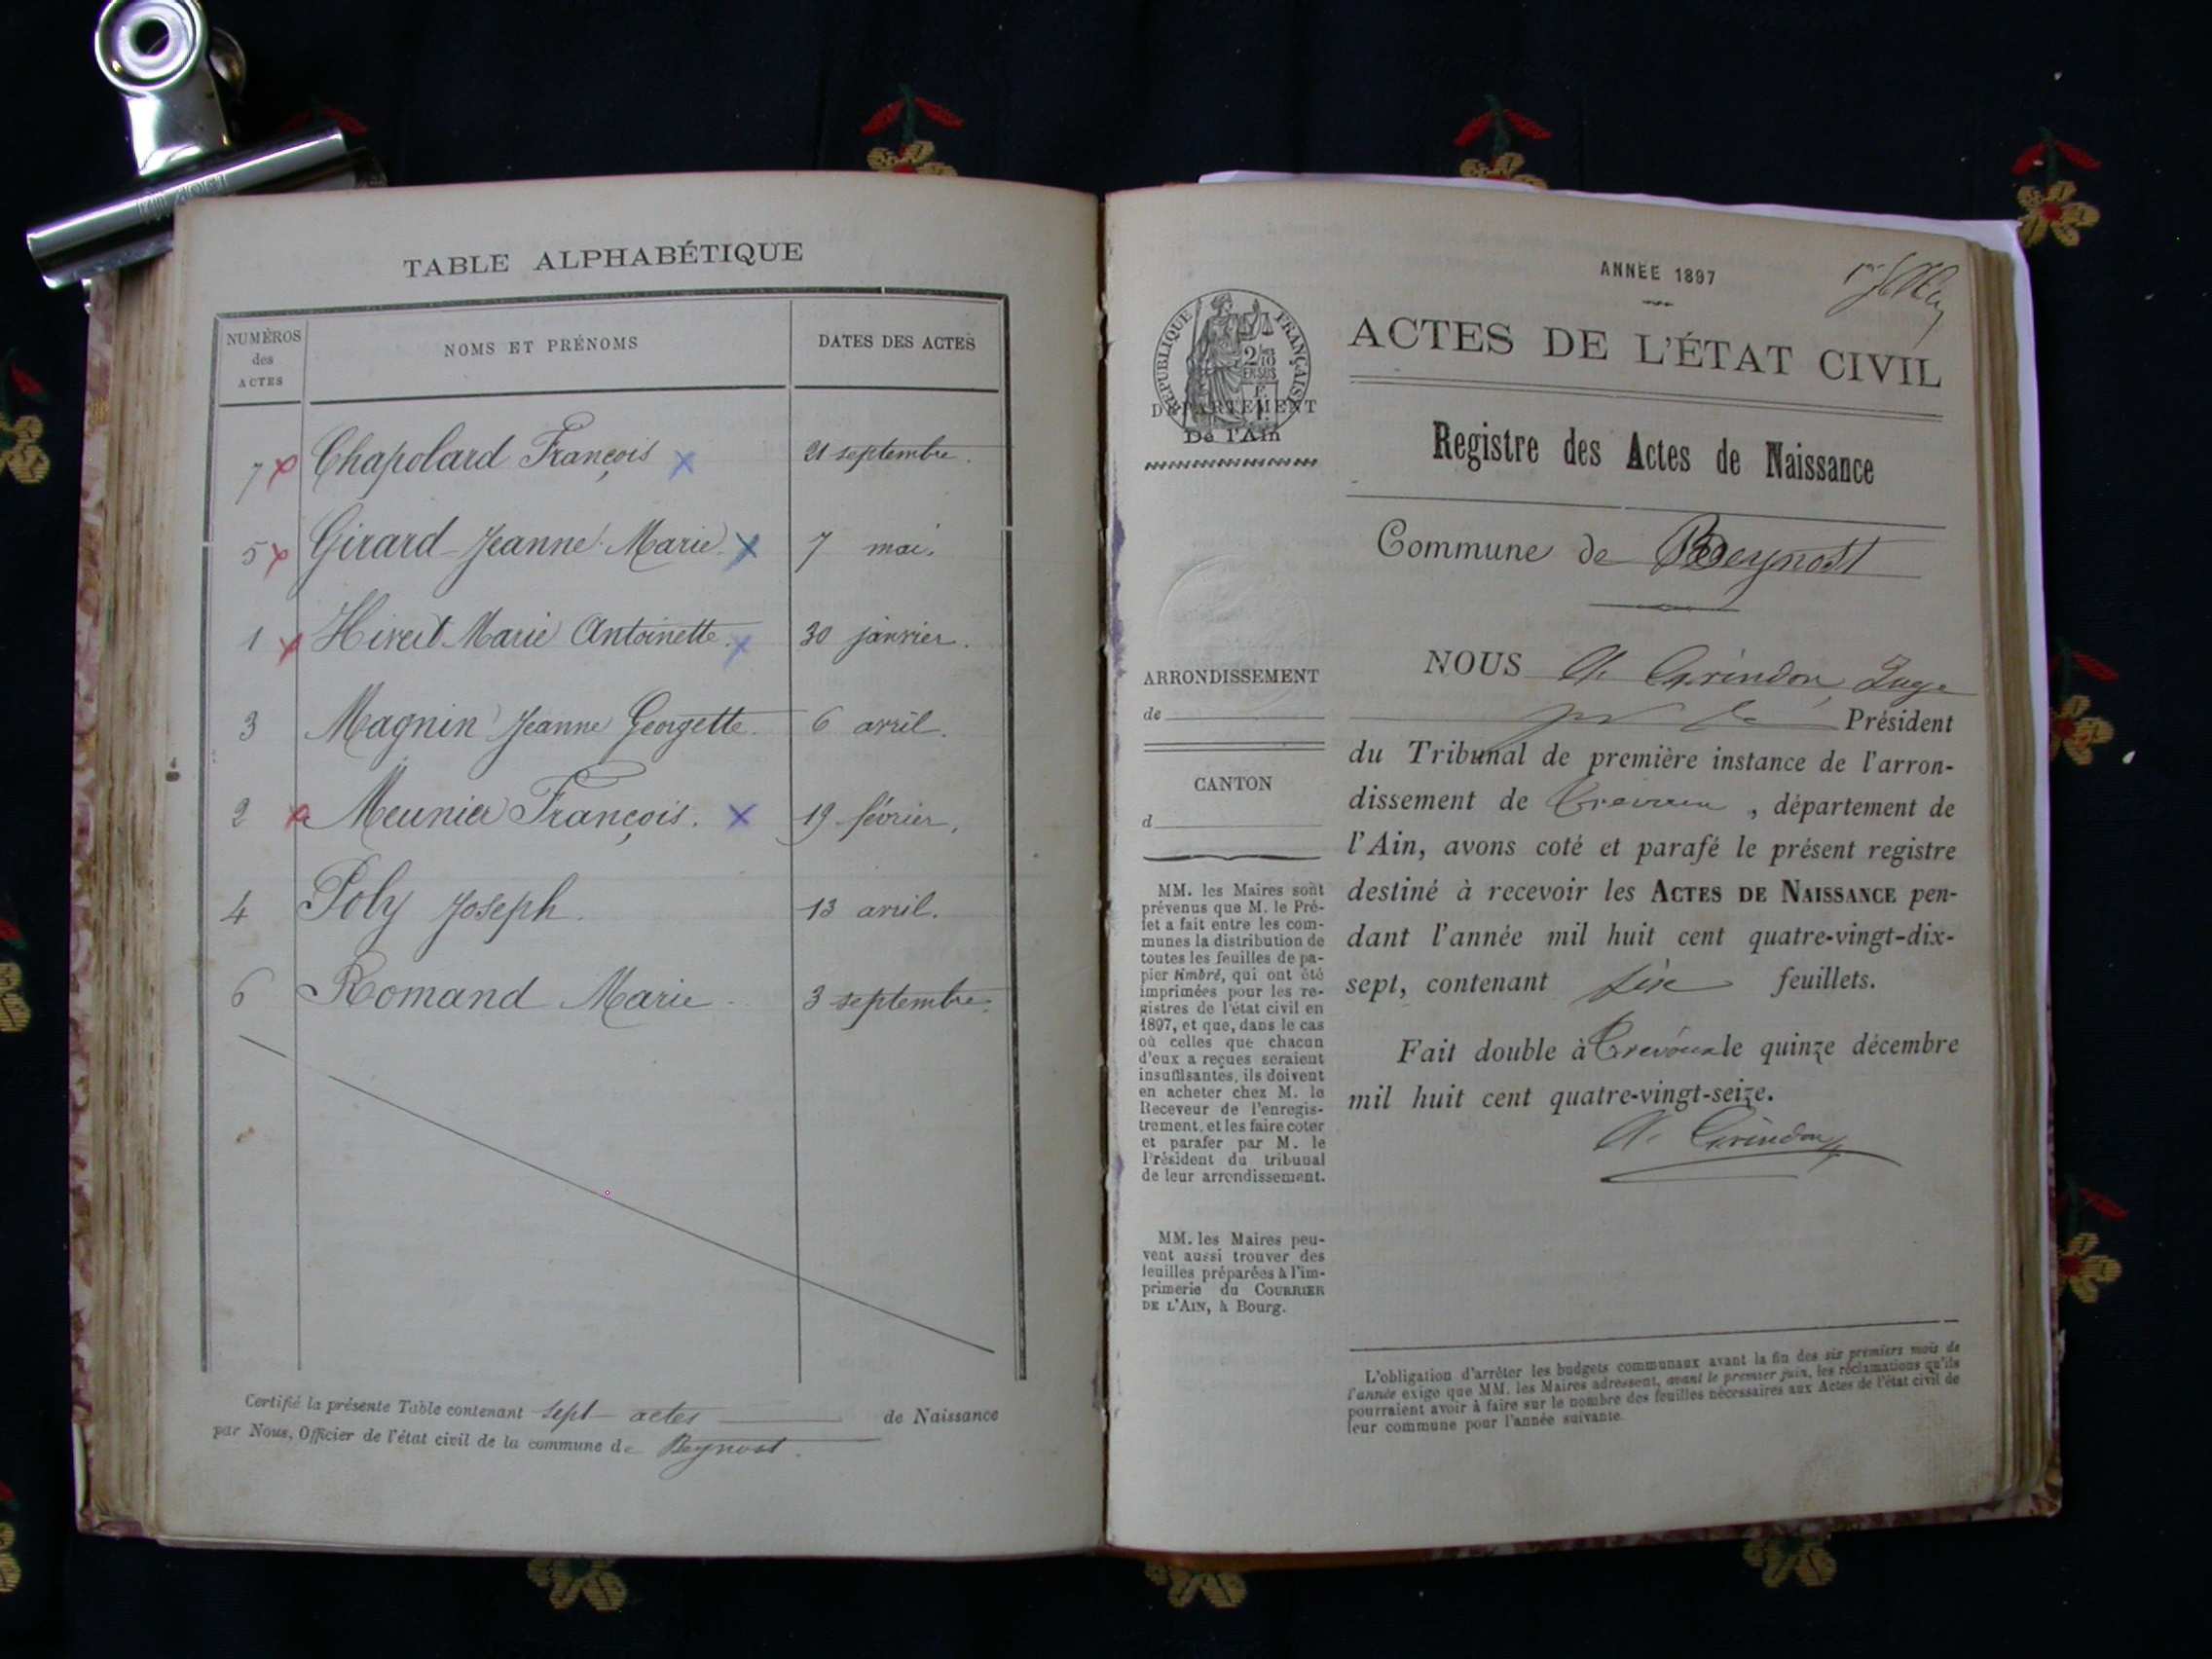 TABLE ALPHABÉTIQUE
NUMÉROS des ACTES
NOMS ET PRÉNOMS
DATES DES ACTES
7 Chapolard François 21 septembre.
5 Girard Jeanne Marie 7 mai.
1 Marie Antoinette. 30 janvier.
3 Magnin Jeanne Georgette. 6 avril.
2 Meunier François. 19 février.
4 Poly Joseph. 13 avril.
6 Romand Marie 3 septembre.
Certifié la présente Table contenant sept actes de Naissance
par Nous, Officier de l'état civil de la commune de Beynost.
ANNÉE 1897
RÉPUBLIQUE FRANÇAISE
DÉPARTEMENT
De l'Ain
ACTES DE L'ÉTAT CIVIL
Registre des Actes de Naissance
Commune de Beynost
ARRONDISSEMENT
de
CANTON
d
MM. les Maires sont
prévenus que M. le Pré-
fet a fait entre les com-
munes la distribution de
toutes les feuilles de pa-
pier timbré, qui ont été
imprimées pour les re-
gistres de l'état civil en
1897, et que, dans le cas
où celles que chacun
d'eux a reçues seraient
insuffisantes, ils doivent
en acheter chez M. le
Receveur de l'enregis-
trement, et les faire coter
et parafer par M. le
Président du tribunal
de leur arrondissement.
MM. les Maires peu-
vent aussi trouver des
feuilles préparées à l'im-
primerie du COURRIER
DE L'AIN, à Bourg.
NOUS A. Grindon, Juge
Président
du Tribunal de première instance de l'arron-
dissement de Trévoux, département de
l'Ain, avons coté et parafé le présent registre
destiné à recevoir les ACTES DE NAISSANCE pen-
dant l'année mil huit cent quatre-vingt-dix-
sept, contenant feuillets.
Fait double à Trévoux le quinze décembre
mil huit cent quatre-vingt-seize.
A. Grindon
L'obligation d'arrêter les budgets communaux avant la fin des six premiers mois de
l'année exige que MM. les Maires adressent, avant le premier juin, les réclamations qu'ils
pourraient avoir à faire sur le nombre des feuilles nécessaires aux Actes de l'état civil de
leur commune pour l'année suivante.